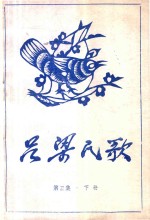 吕梁民歌
第二集·下册